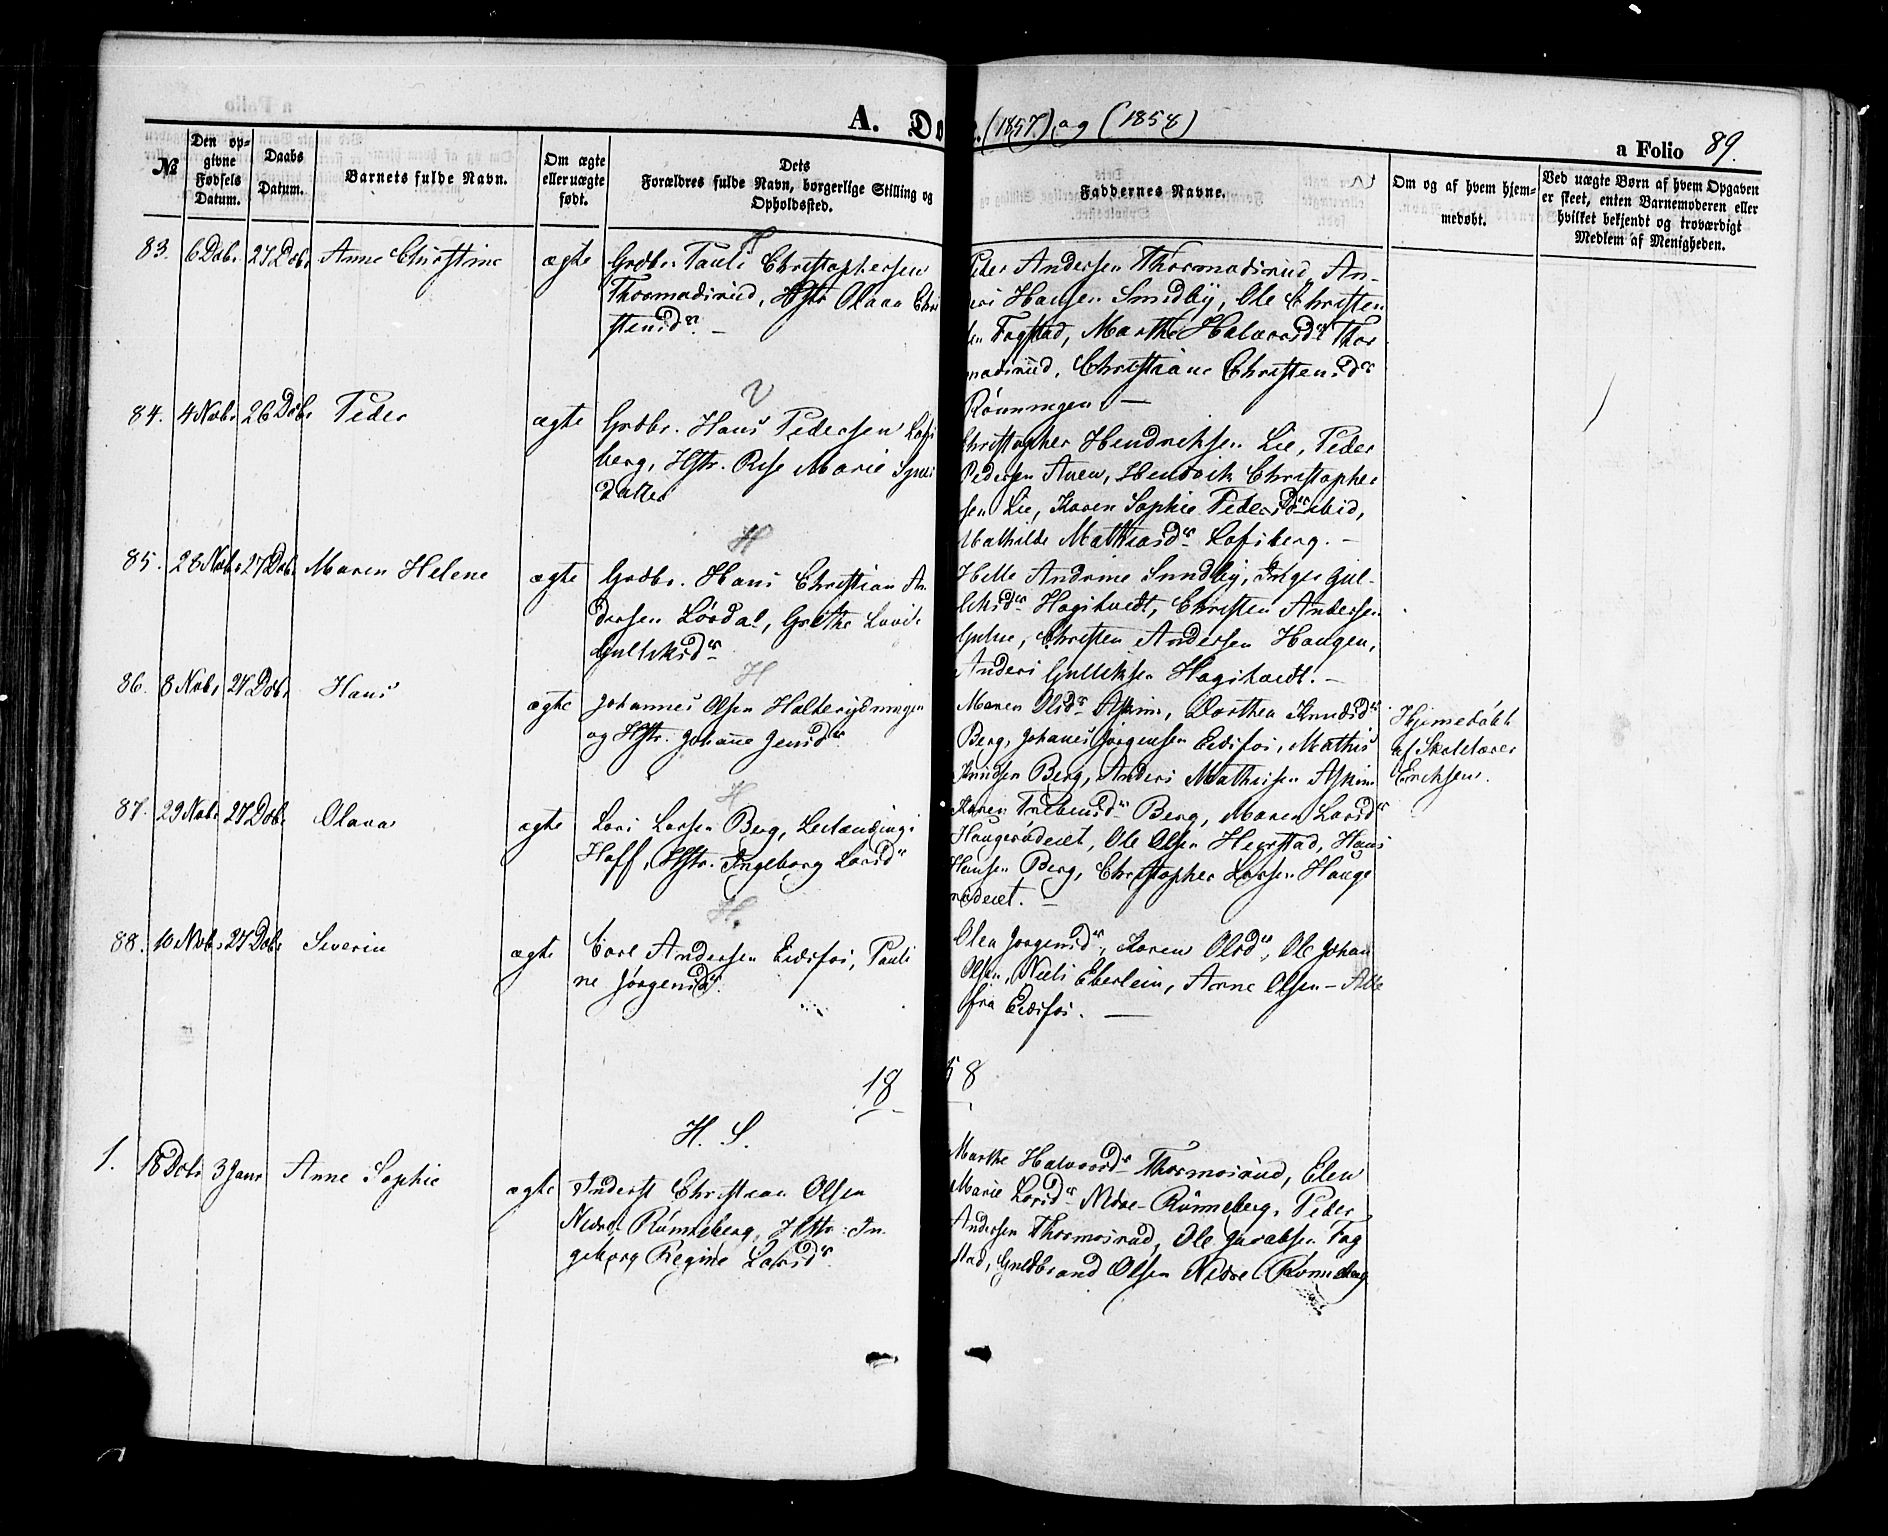 A. Do (1857) og (1858)
a Folio 89.
№
Den op-
givne
Fødsels
Datum.
Daabs
Datum.
Barnets fulde Navn.
Om ægte
eller uægte
født.
Dets
Forældres fulde Navn, borgerlige Stilling og
Opholdssted.
Faddernes Navne.
Om og af hvem hjem-
medøbt.
Ved uægte Børn af hvem Opgaven
er skeet, enten Barnemoderen eller
hvilket bekjendt og troværdigt
Medlem af Menigheden.
H
83. 6 Dcbr 27 Dcbr Anne Christine ægte Grdbr. Pauli Christophersen
Thormodsrud, Hstr Olava Chri
stensdr. —
Peter Andersen Thormodsrud, An-
ders Hansen Smidby, Ole Christen
sen Fagstad, Marthe Halvorsdr Thor
modsrud, Christiane Christensdr
Rønningen —
V
84. 4 Nvbr 26 Dcbr Peder ægte Grdbr. Hans Pedersen Lofs
berg, Hstr. Rise Marie
Datter
Christopher Hendriksen Lie, Peder
Pedersen Aaen, Hendrik Christopher
sen Lie, Karen Sophie Pedersdr ibid,
Mathilde Mathiasdr Lofsberg. —
H
85. 28 Nvbr 27 Dcbr Maren Helene ægte Grdbr. Hans Christian An
dersen Lørdal, Grethe Lovise
Gulliksdr
Helle Andrine Sundby, Inger Gul-
liksdr Hagitvedt, Christen Andersen
Gulue, Christen Andersen Haugen,
Anders Gulliksen Hagitvedt. —
H
86. 8 Nvbr 27 Dcbr Hans ægte Johannes Olsen Holterydningen
og Hstr. Johanne Jensdr.
Maren Olsdr Askim, Dorthea Knudsdr
Berg, Johanes Jørgensen Eidsfos, Mathis
Knudsen Berg, Anders Mathisen Askim
Hjemedøbt
af Skolelærer
Erichsen.
H
87. 29 Nvbr 27 Dcbr Olava ægte Lars Larsen Berg,
Hoff, Hstr. Ingeborg Larsdr
Karen Berg, Maren Larsdr
Haugerødeiet, Ole Olsen Hegstad, Hans
Hansen Berg, Christopher Larsen Hauge
rødeiet. —
H.
88. 10 Nvbr 27 Dcbr Severin ægte Carl Andersen Eidsfos, Pauli
ne Jørgensdr.
Olea Jørgensdr, Karen Olsdr, Ole Johan
Olsen, Niels Eberlein, Arne Olsen — Alle
fra Eidsfos. —
18 58
H. S.
1. 18 Dcbr 3 Janr Anne Sophie ægte Inderst Christian Olsen
Nedre Rønneberg, Hstr. In
geborg Regine Larsdr.
Marthe Halvorsdr Thormosrud, Elen
Marie Larsdr Nedre-Rønneberg, Peder
Andersen Thormosrud, Ole Jacobsen Fag
stad, Guldbrand Olsen Nedre Rønneberg